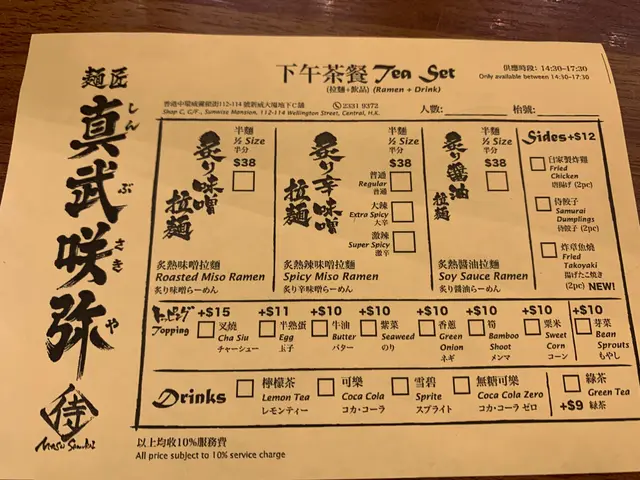 麵匠
真武咲弥
しん
ぶ
さき
や
侍
下午茶餐 Tea Set
(拉麵+飲品) (Ramen + Drink)
供應時段: 14:30-17:30
Only available between 14:30-17:30
香港中環威靈頓街112-114 號新威大廈地下C舖
Shop C, G/F., Sumwize Mansion, 112-114 Wellington Street, Central, H.K.
2331 9372
人數:
枱號:
炙り味噌拉麵
半麵
½ Size
半分
$38
炙熱味噌拉麵
Roasted Miso Ramen
炙り味噌らーめん
炙り辛味噌拉麵
半麵
½ Size
半分
$38
普通
Regular
普通
大辣
Extra Spicy
大辛
激辣
Super Spicy
激辛
炙熱辣味噌拉麵
Spicy Miso Ramen
炙り辛味噌らーめん
炙り醬油拉麵
半麵
½ Size
半分
$38
炙熱醬油拉麵
Soy Sauce Ramen
炙り醤油らーめん
Sides+$12
自家製炸雞
Fried
Chicken
唐揚げ (2pc)
侍餃子
Samurai
Dumplings
侍餃子 (2pc)
炸章魚燒
Fried
Takoyaki
揚げたこ焼き
(2pc) NEW!
トッピング
Topping
+$15
叉燒
Cha Siu
チャーシュー
+$11
半熟蛋
Egg
玉子
+$10
牛油
Butter
バター
+$10
紫菜
Seaweed
のり
+$10
香蔥
Green
Onion
ネギ
+$10
筍
Bamboo
Shoot
メンマ
+$10
粟米
Sweet
Corn
コーン
+$10
芽菜
Bean
Sprouts
もやし
Drinks
檸檬茶
Lemon Tea
レモンティー
可樂
Coca Cola
コカ・コーラ
雪碧
Sprite
スプライト
無糖可樂
Coca Cola Zero
コカ・コーラ ゼロ
綠茶
Green Tea
+$9 緑茶
以上均收10%服務費
All price subject to 10% service charge